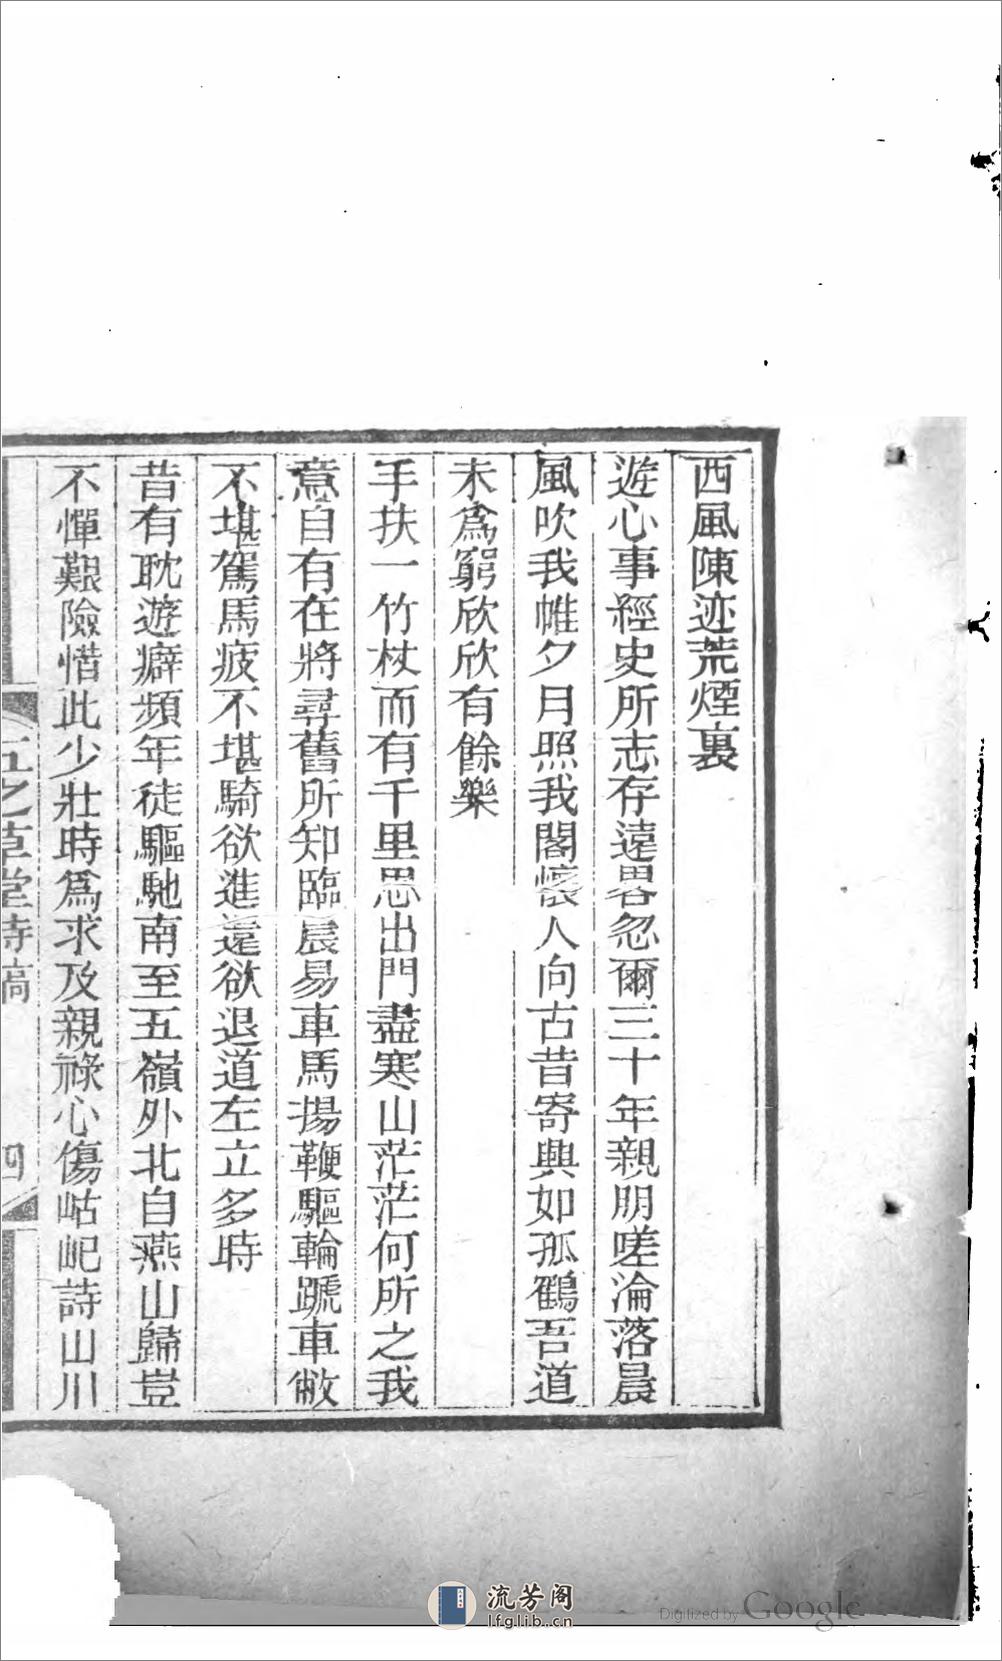 西風陳迹荒煙裏
遊心事經史所志存遠畧忽爾三十年親朋嗟淪落晨
風吹我帷夕月照我閣懷人向古昔寄興如孤鶴吾道
未爲窮欣欣有餘樂
手扶一竹杖而有千里思出門盡寒山茫茫何所之我
意自有在將尋舊所知臨晨易車馬揚鞭驅輪蹏車敝
不堪駕馬疲不堪騎欲進還欲退道左立多時
昔有耽遊癖頻年徒驅馳南至五嶺外北自燕山歸豈
不憚艱險惜此少壯時爲求及親祿心傷岵屺詩山川
草堂詩稿
四
流芳阁
lfglib.cn
Digitized by Google